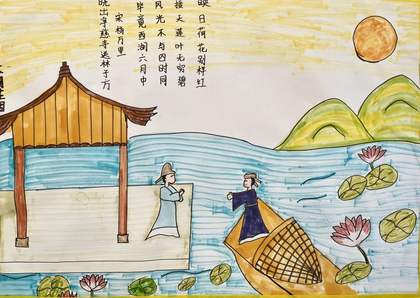 晓出净慈寺送林子方
宋杨万里
毕竟西湖六月中
风光不与四时同
接天莲叶无穷碧
映日荷花别样红